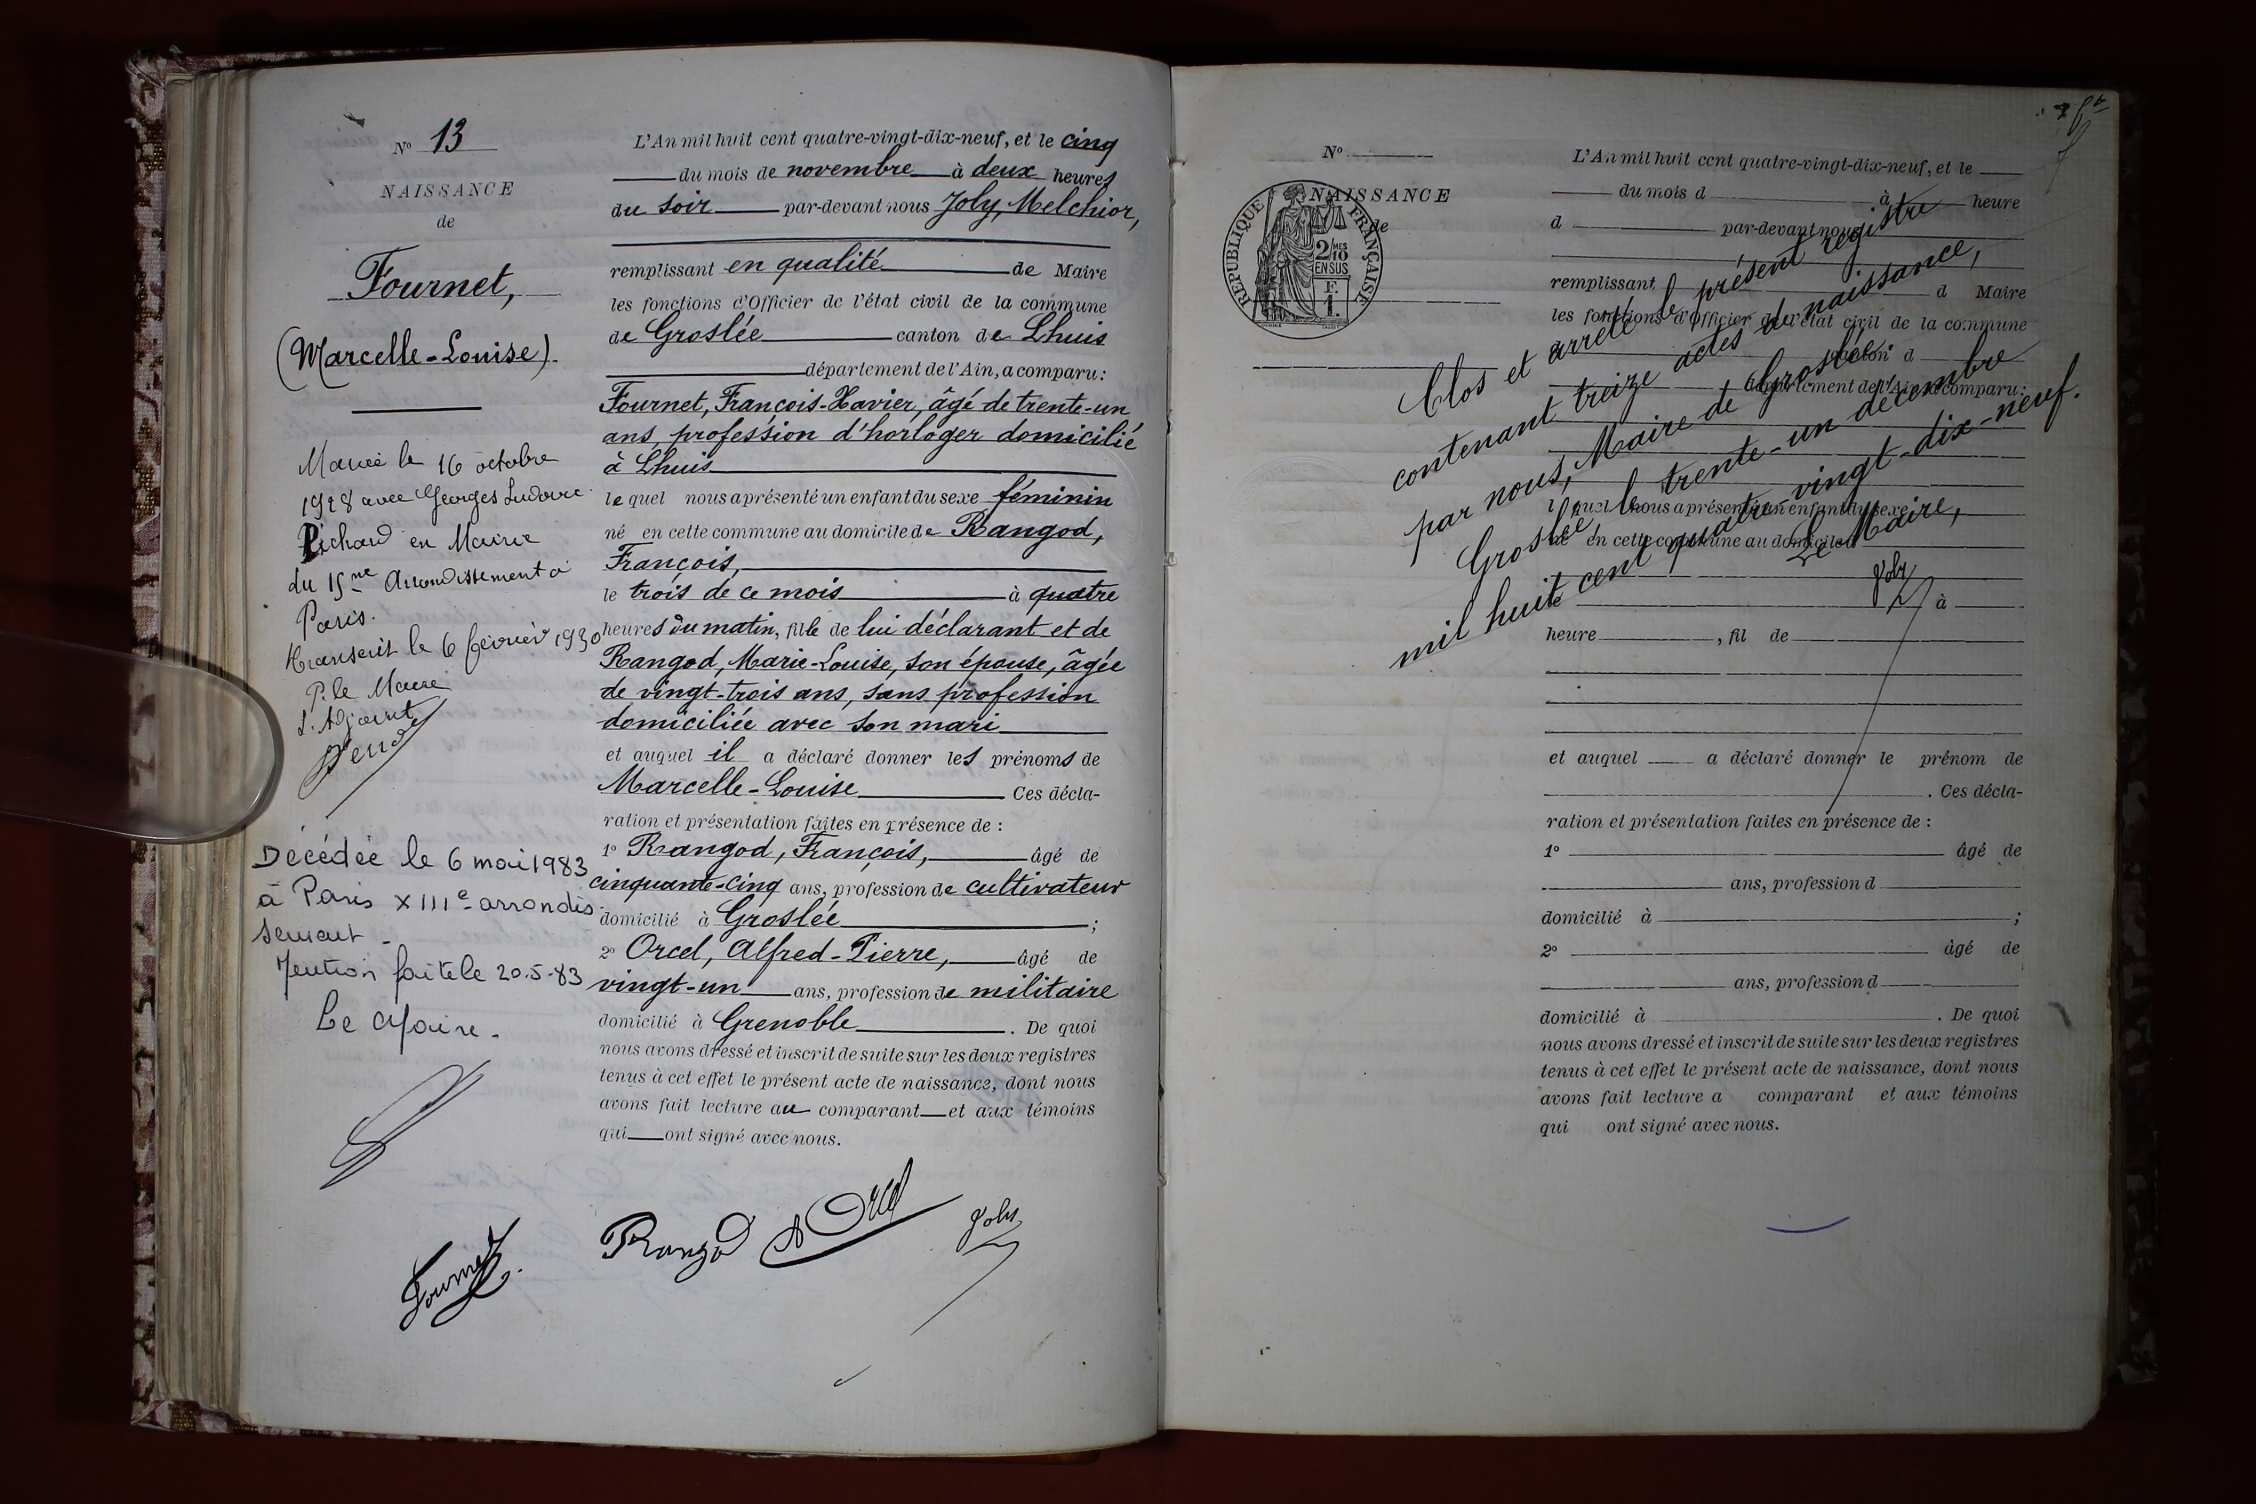 N° 13
NAISSANCE
de
Fournet,
(Marcelle-Louise).
Mariée le 16 octobre
1928 avec Georges Ludovic
Pichard en Mairie
du 15me Arrondissement à
Paris.
Transcrit le 6 février 1930
P. le Maire
L'Adjoint
Décédée le 6 mai 1983
à Paris XIIIe arrondis-
sement -
Mention faite le 20.5.83
Le Maire.
L'An mil huit cent quatre-vingt-dix-neuf, et le cinq
du mois de novembre à deux heures
du soir par-devant nous Joly, Melchior,
remplissant en qualité de Maire
les fonctions d'Officier de l'état civil de la commune
de Groslée canton de Lhuis
département de l'Ain, a comparu:
Fournet, François-Xavier, âgé de trente-un
ans, profession d'horloger domicilié
à Lhuis
lequel nous a présenté un enfant du sexe féminin
né en cette commune au domicile de Rangod,
François,
le trois de ce mois à quatre
heures du matin, fille de lui déclarant et de
Rangod, Marie-Louise, son épouse, âgée
de vingt-trois ans, sans profession
domiciliée avec son mari
et auquel il a déclaré donner les prénoms de
Marcelle-Louise Ces décla-
ration et présentation faites en présence de :
1° Rangod, François, âgé de
cinquante-cinq ans, profession de cultivateur
domicilié à Groslée ;
2° Orcel, Alfred-Pierre, âgé de
vingt-un ans, profession de militaire
domicilié à Grenoble . De quoi
nous avons dressé et inscrit de suite sur les deux registres
tenus à cet effet le présent acte de naissance, dont nous
avons fait lecture au comparant et aux témoins
qui ont signé avec nous.
Fournet
Rangod A Orcel Joly
N°
NAISSANCE
de
RÉPUBLIQUE FRANÇAISE
2/10 MES
EN SUS
F.
1.
L'An mil huit cent quatre-vingt-dix-neuf, et le
du mois d à heure
d par-devant nous
remplissant d Maire
les fonctions d'Officier de l'état civil de la commune
canton d
département de l'Ain, a comparu:
l quel nous a présenté un enfant du sexe
né en cette commune au domicile d
le à
heure , fil de
et auquel a déclaré donner le prénom de
. Ces décla-
ration et présentation faites en présence de :
1° âgé de
ans, profession d
domicilié à ;
2° âgé de
ans, profession d
domicilié à . De quoi
nous avons dressé et inscrit de suite sur les deux registres
tenus à cet effet le présent acte de naissance, dont nous
avons fait lecture a comparant et aux témoins
qui ont signé avec nous.
Clos et arrêté le présent registre
contenant treize actes de naissance,
par nous, Maire de Groslée.
Groslée, le trente-un décembre
mil huit cent quatre vingt-dix-neuf.
Le Maire,
Joly